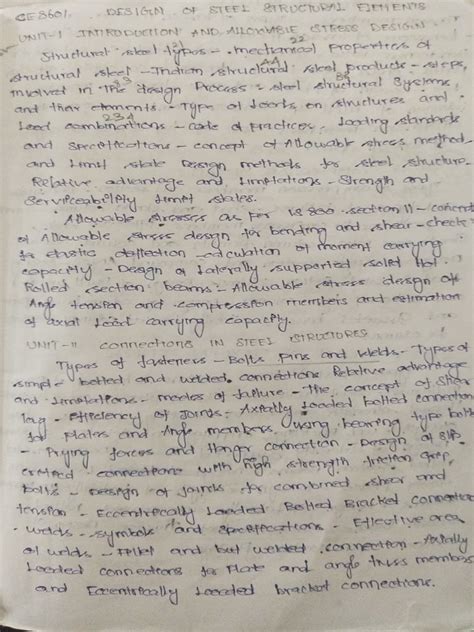 CE8601. DESIGN OF STEEL STRUCTURAL ELEMENTS
UNIT-I INTRODUCTION AND ALLOWABLE STRESS DESIGN
Structural steel types - mechanical properties of
structural steel - Indian structural steel products - steps
involved in the design Process - steel structural systems
and their elements - Type of Loads on structures and
Load combinations - code of practices, Loading standards
and specifications - concept of Allowable stress method
and limit state Design methods for steel structure
Relative advantage and limitations - Strength and
Serviceability limit states.
Allowable stresses as per IS 800 section 11 - concept
of Allowable stress design for bending and shear - check
for elastic deflection - calculation of moment carrying
capacity - Design of laterally supported solid Hot
Rolled section beams - Allowable stress design of
Angle tension and compression members and estimation
of axial load carrying capacity.
UNIT-II CONNECTIONS IN STEEL STRUCTURES
Types of fasteners - Bolts pins and welds - Types of
simple bolted and welded connections Relative advantage
and limitations - modes of failure - The concept of Shear
lag - efficiency of joints - Axially Loaded bolted connection
for Plates and Angle members using bearing type bolts
- Prying forces and Hanger connection - Design of slip
critical connections with high strength friction grip
bolts - Design of joints for combined shear and
tension - Eccentrically Loaded Bolted Bracket connections
- welds - symbols and specifications - Effective area
of welds - Fillet and but welded connection - Axially
Loaded connections for Plate and angle truss members
and Eccentrically Loaded bracket connections.